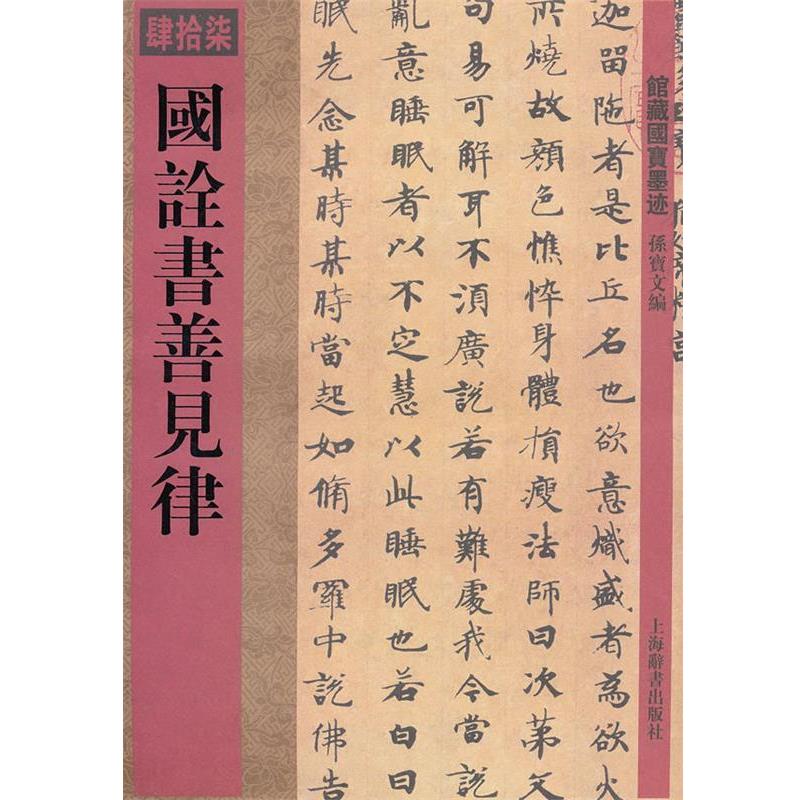 館藏國寶墨迹
孫寶文編
上海辭書出版社
迦留陁者是比丘名也欲意熾盛者為欲火
所燒故顏色憔悴身體損瘦法師曰次第文
句易可解耳不湏廣説若有難處我今當説
亂意睡眠者以不定慧以此睡眠也若白日
眠先念某時某時當起如脩多羅中説佛告
肆拾柒
國詮書善見律